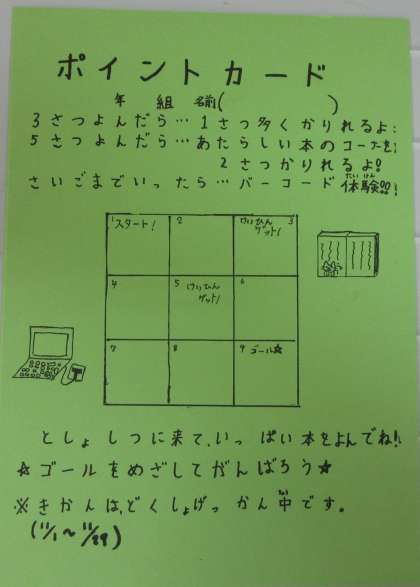 ポイントカード
年 組 名前( )
3さつよんだら…1さつ多くかりれるよ!
5さつよんだら…あたらしい本のコーナーを!
2さつかりれるよ!
さいごまでいったら…バーコード体験!!
たいけん
1 スタート!
2
けいひんゲット! 3
4
5 けいひんゲット!
6
7
8
9 ゴール☆
としょしつに来て、いっぱい本をよんでね!!
☆ゴールをめざしてがんばろう☆
※きかんは、どくしょげっかん中です。
(11/1~11/29)